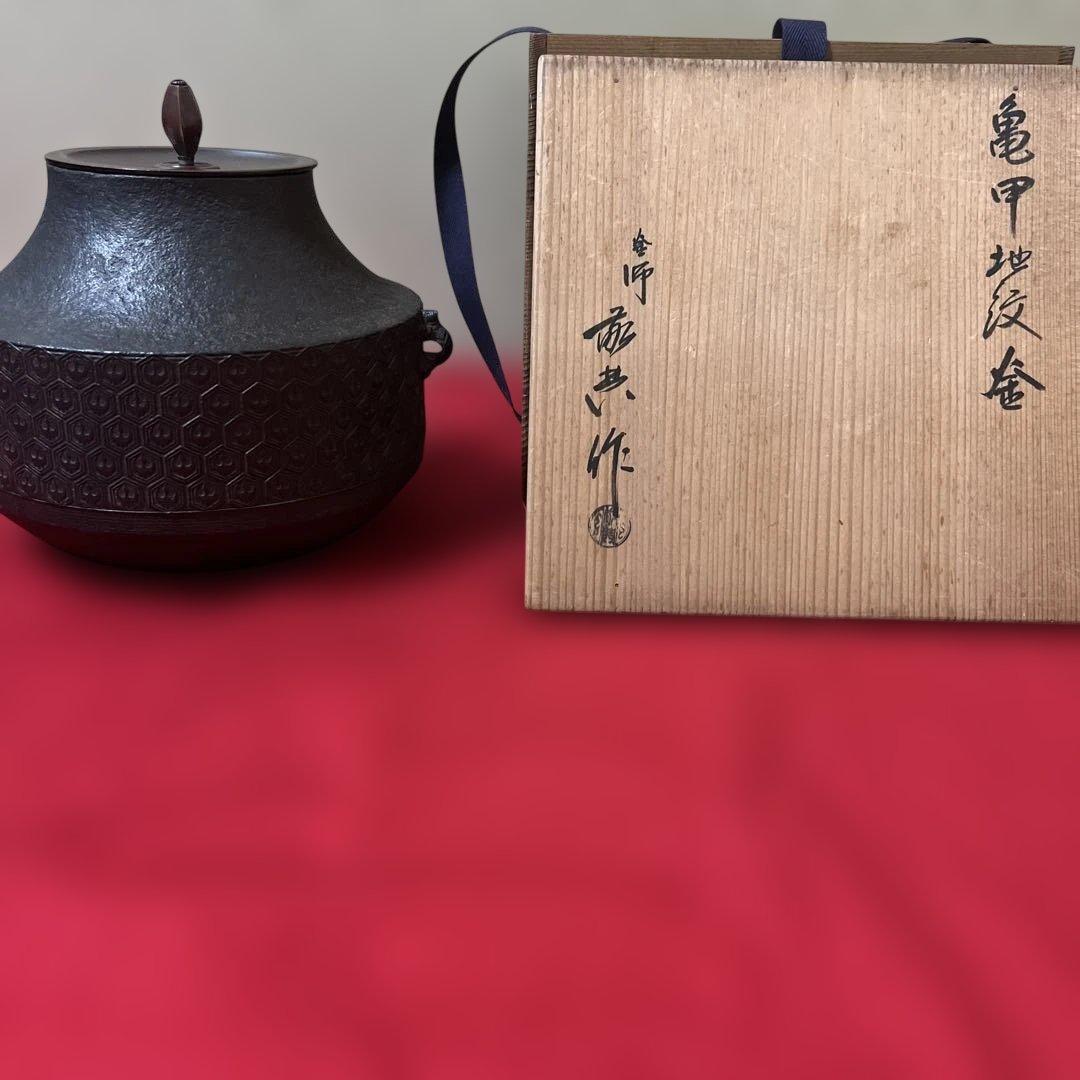 亀甲地紋釜
釜師
敬典作